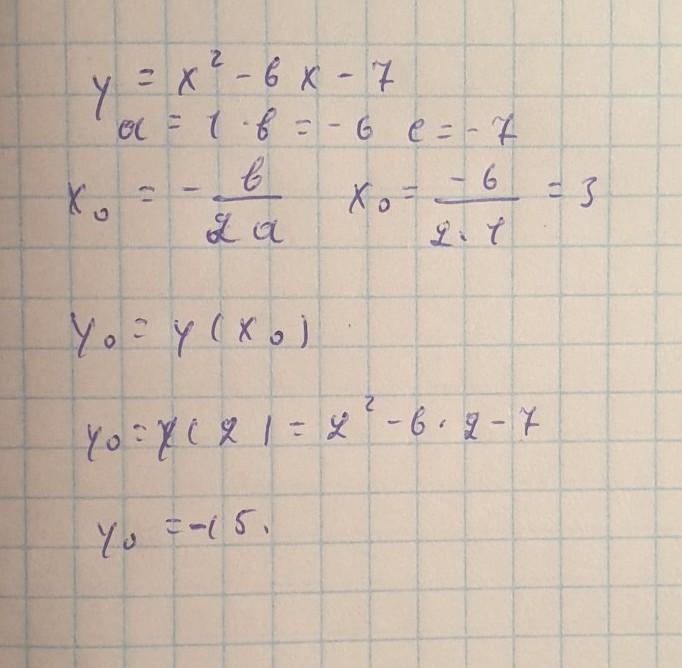 y = x² - 6x - 7
a = 1 · b = -6 c = -7
x₀ = - b/2a x₀ = -6/2·1 = 3
y₀ = y(x₀)
y₀ = y(2) = 2² - 6·2 - 7
y₀ = -15.